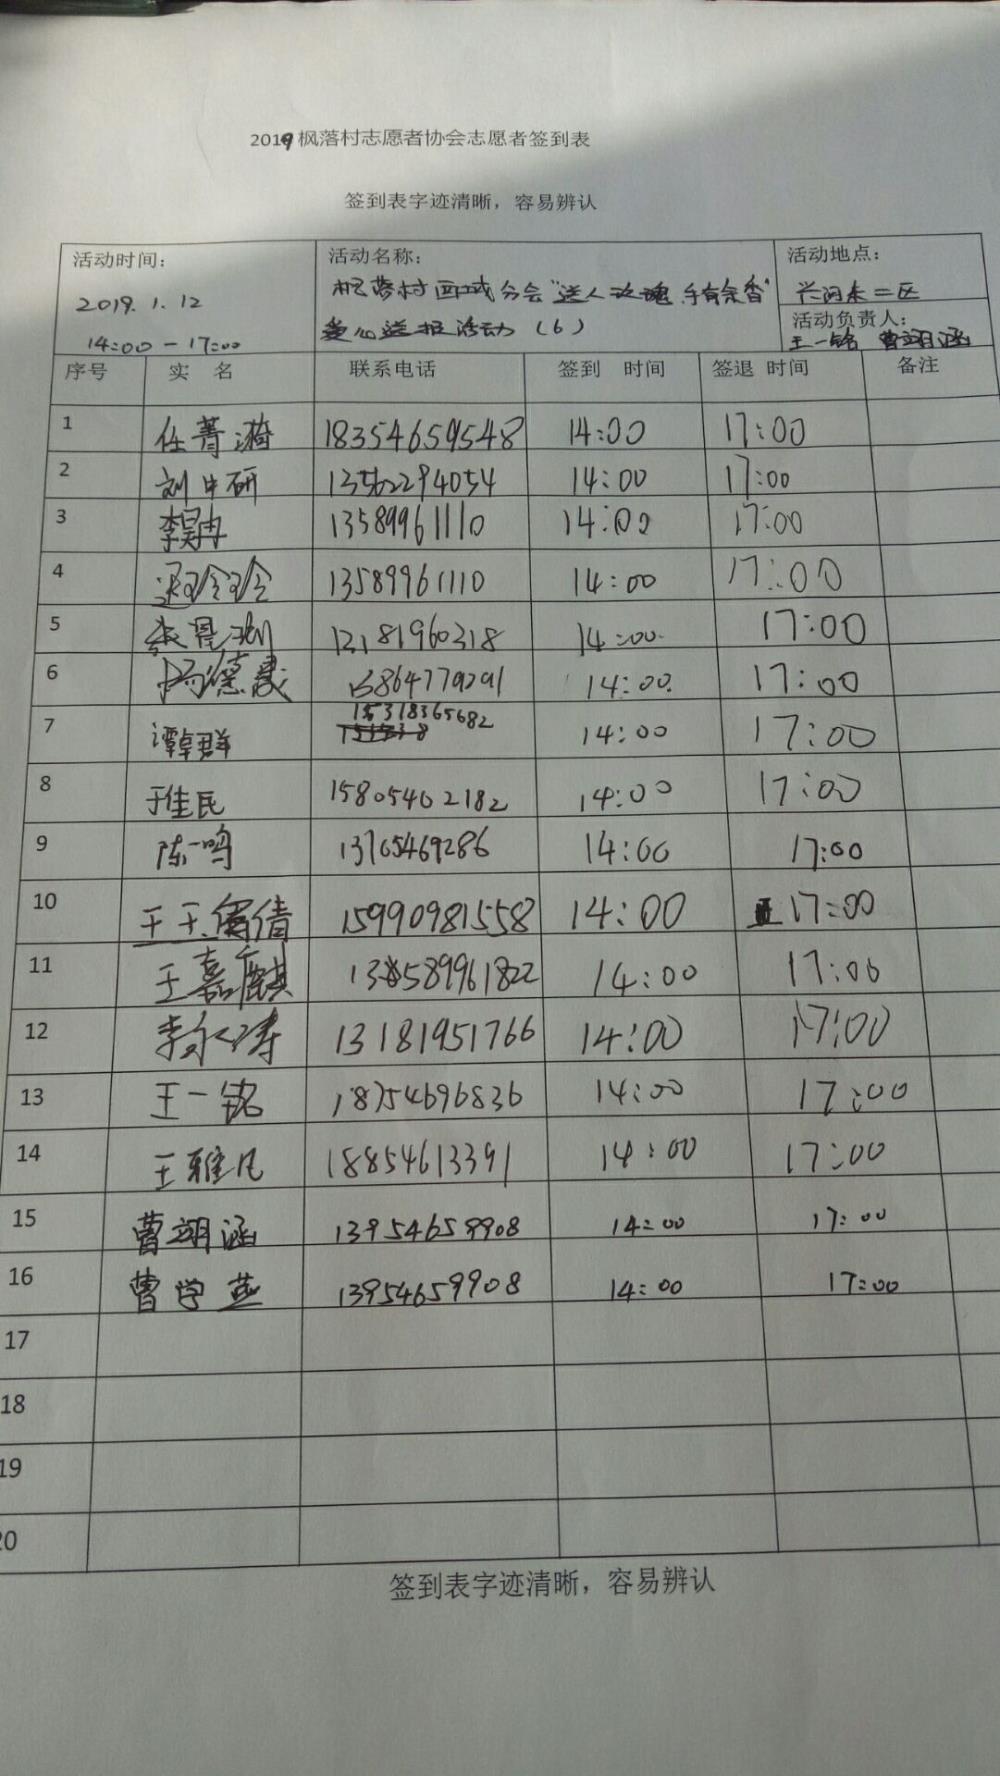 2019枫落村志愿者协会志愿者签到表
签到表字迹清晰，容易辨认
活动时间：
2019.1.12
14:00-17:00
活动名称：
枫落村西城分会"送人玫瑰 手有余香"
爱心送报活动（6）
活动地点：
兴河东二区
活动负责人：
王一铭 曹翊涵
序号 实 名 联系电话 签到 时间 签退 时间 备注
1 任菁漪 18354659548 14:00 17:00
2 刘中研 13562294054 14:00 17:00
3 李昊冉 13589961110 14:00 17:00
4 13589961110 14:00 17:00
5 13181960318 14:00 17:00
6 13864779291 14:00 17:00
7 谭卓群 15318365682 14:00 17:00
8 于佳民 15805462182 14:00 17:00
9 陈一鸣 13705469286 14:00 17:00
10 15990981558 14:00 17:00
11 王嘉麒 13589961822 14:00 17:00
12 李永涛 13181951766 14:00 17:00
13 王一铭 18754696836 14:00 17:00
14 王雅凡 18854613391 14:00 17:00
15 曹翊涵 13954659908 14:00 17:00
16 曹学燕 13954659908 14:00 17:00
17
18
19
20
签到表字迹清晰，容易辨认